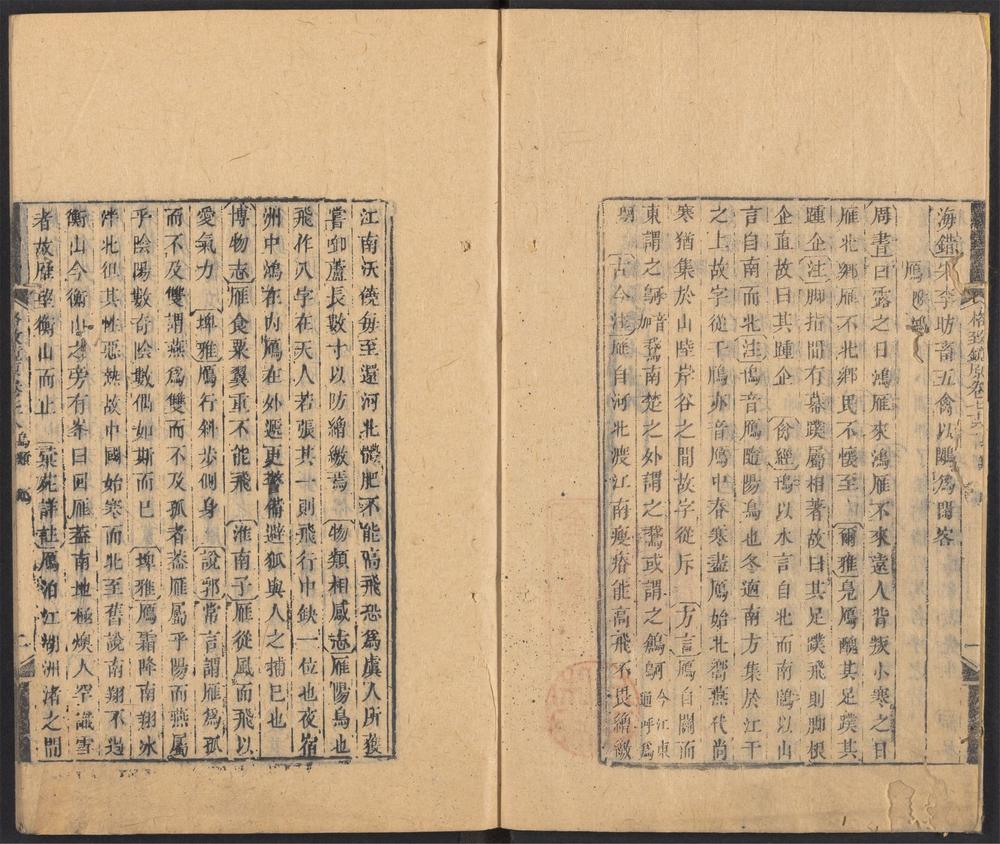 格致鏡原卷七十八
海錯 宋李昉畜五禽以鷴為閑客
鴈 附鴻
周書白露之日鴻雁來鴻雁不來遠人背叛小寒之日
雁北鄉雁不北鄉民不懷至 爾雅鳧鴈醜其足蹼其
踵企 注 脚指間有幕蹼屬相著故曰其足蹼飛則脚根
企直故曰其踵企 禽經鳱以水言自北而南鳱以山
言自南而北 注 鳱音鴈隨陽鳥也冬適南方集於江干
之上故字從干鳱亦音鴈中春寒盡鴈始北嚮燕代尚
寒猶集於山陸岸谷之間故字從斥 方言 鴈自關而
東謂之鴚音加鵞南楚之外謂之鵞或謂之鶬鴚今江東通呼為
鴚 古今注 雁自河北渡江南瘦瘠能高飛不畏繒繳
江南沃饒每至還河北體肥不能高飛恐為虞人所獲
嘗啣蘆長數寸以防繒繳焉 物類相感志 雁陽鳥也
飛作八字在天人若張其一則飛行中缺一位也夜宿
洲中鴻在內鴈在外遞更警備避狐與人之捕已也
博物志 雁食粟翼重不能飛 淮南子 雁從風而飛以
愛氣力 埤雅 鴈行斜步側身 說郛 常言謂雁為孤
而不及雙謂燕為雙而不及孤者蓋雁屬乎陽而燕屬
乎陰陽數奇陰數偶如斯而已 埤雅 鴈霜降南翔冰
泮北徂其性惡熱故中國始寒而北至舊說南翔不過
衡山今衡山之旁有峯曰回雁蓋南地極燠人罕識雪
者故雁望衡山而止 彙苑詳註 鴈泊江湖洲渚之間
格致鏡原卷七十八 鳥類